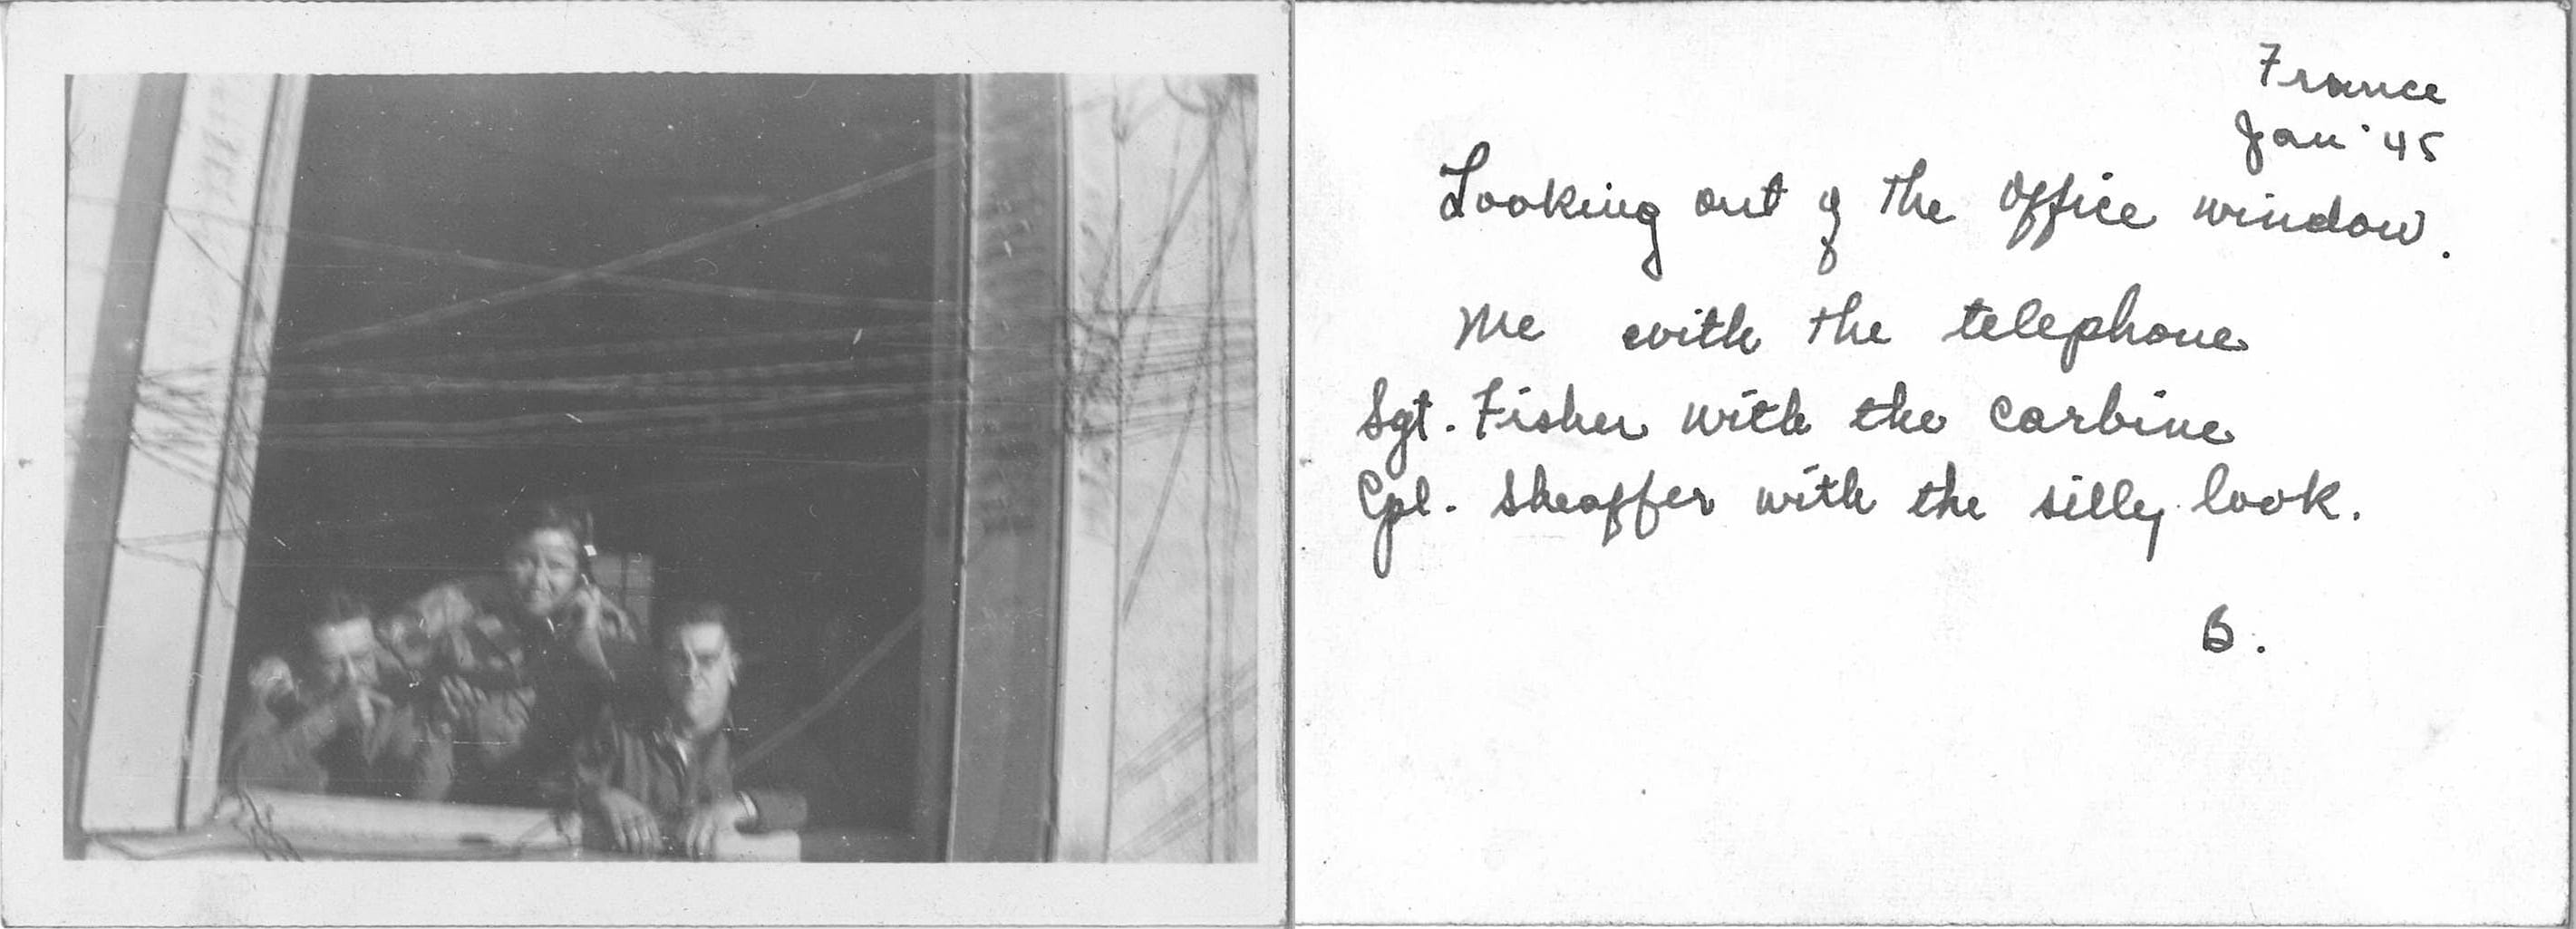 France
Jan '45
Looking out of the office window.
Me with the telephone
Sgt. Fisher with the carbine
Cpl. Sheaffer with the silly look.
B.